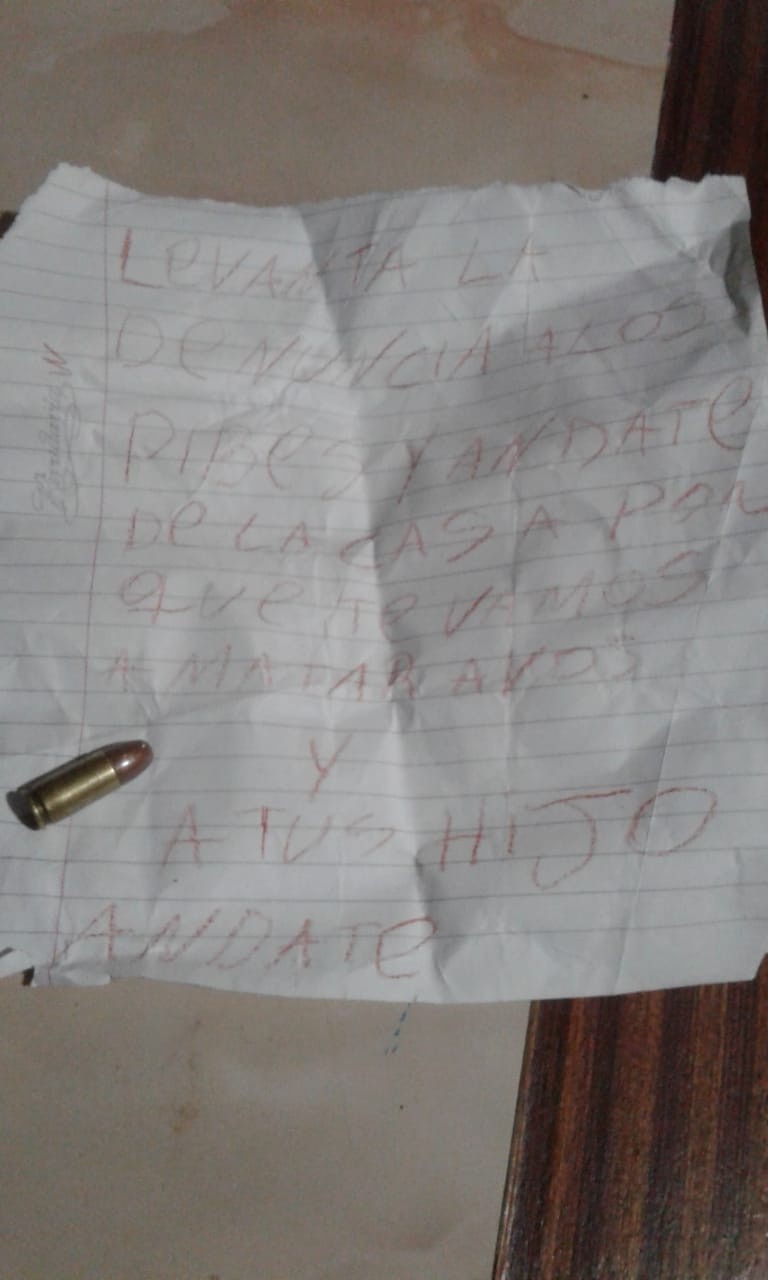 LeVANTA LA
DeNUNCIA ALOS
PIBeS Y ANDATe
De LA CASA POR
QUe Te VAMOS
A MATAR AVOS
Y
A TUS HIJO
ANDATe